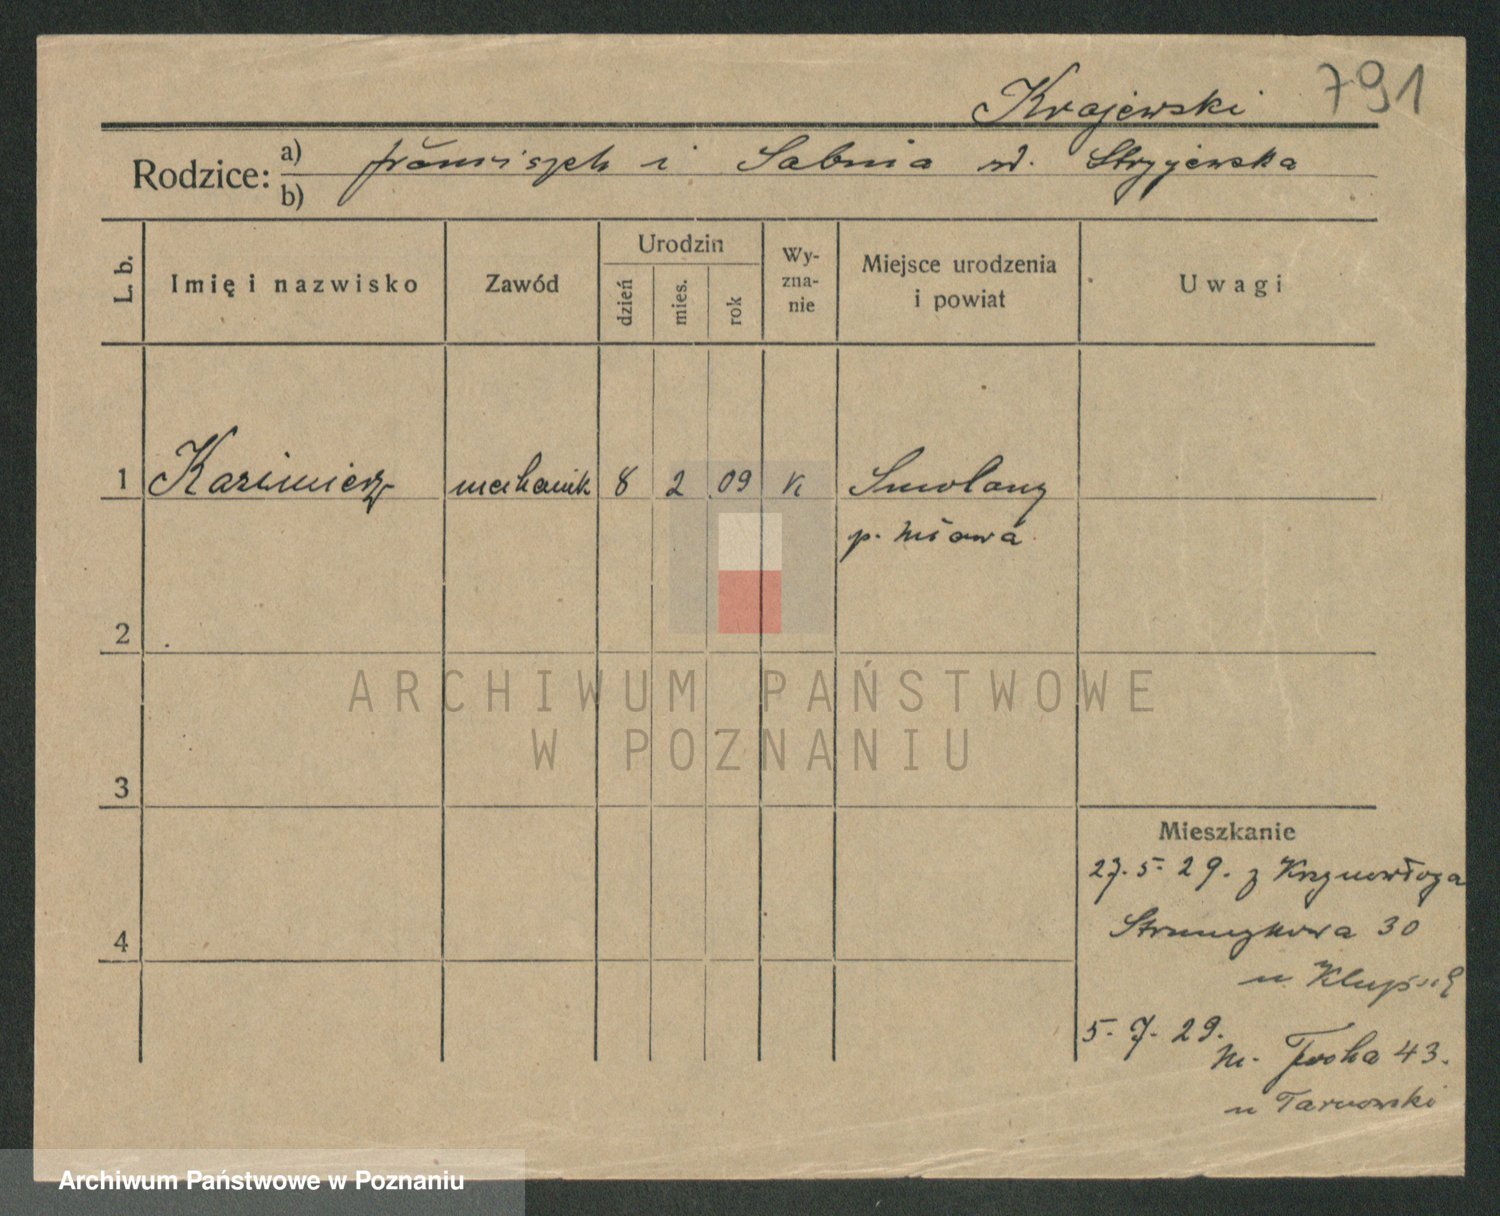 791
Krajewski
Rodzice: a) Franciszek i Sabina zd. Stryjewska
b)
L. b.
Imię i nazwisko
Zawód
Urodzin
dzień
mies.
rok
Wy-
zna-
nie
Miejsce urodzenia
i powiat
Uwagi
1 Kazimierz mechanik 8 2 09 K Smolany
p. Mława
2
3
4
Mieszkanie
27.5.29. z Krzynowłoga
Strumykowa 30
u
5.7.29.
M. Focha 43.
u Tarnowski
ARCHIWUM PAŃSTWOWE
W POZNANIU
Archiwum Państwowe w Poznaniu